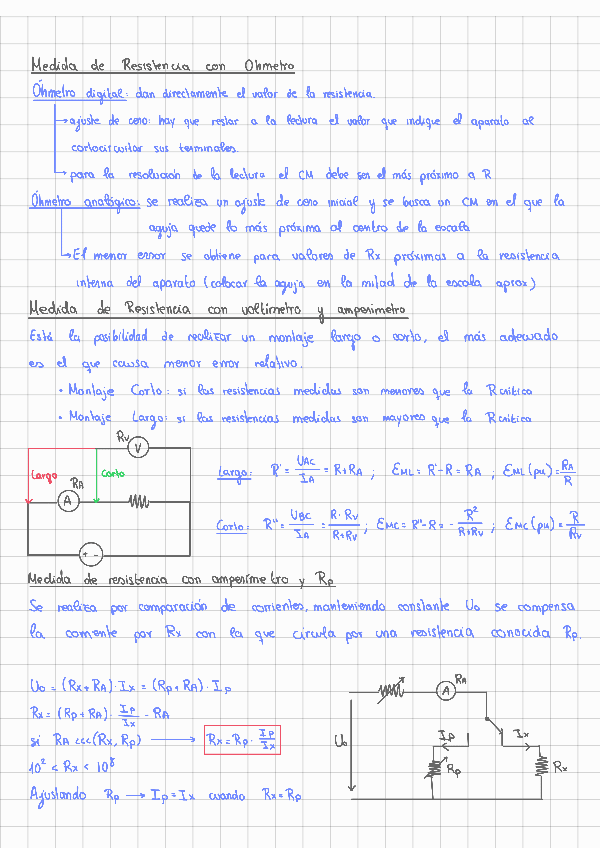 Medida de Resistencia con Ohmetro
Óhmetro digital: dan directamente el valor de la resistencia.
→ajuste de cero: hay que restar a la lectura el valor que indique el aparato al
cortocircuitar sus terminales.
→para la resolución de la lectura el CM debe ser el más próximo a R
Óhmetro analógico: se realiza un ajuste de cero inicial y se busca un CM en el que la
aguja quede lo más próxima al centro de la escala
→El menor error se obtiene para valores de Rx próximas a la resistencia
interna del aparato (colocar la aguja en la mitad de la escala aprox)
Medida de Resistencia con voltímetro y amperímetro
Está la posibilidad de realizar un montaje largo o corto, el más adecuado
es el que causa menor error relativo.
• Montaje Corto: si las resistencias medidas son menores que la Rcrítica
• Montaje Largo: si las resistencias medidas son mayores que la Rcrítica
Rv
V
Largo
RA
Corto
A
+ -
Largo: R' = UAC/IA = R+RA ; EML = R'-R = RA ; EML(pu) = RA/R
Corto: R'' = UBC/IA = R·Rv/R+Rv ; EMC = R''-R = - R²/R+Rv ; EMC(pu) = R/Rv
Medida de resistencia con amperímetro y Rp
Se realiza por comparación de corrientes, manteniendo constante U₀ se compensa
la corriente por Rx con la que circula por una resistencia conocida Rp.
U₀ = (Rx+RA)·Ix = (Rp+RA)·Ip
Rx = (Rp+RA)·Ip/Ix - RA
si RA <<<(Rx, Rp) → Rx = Rp·Ip/Ix
10² < Rx < 10⁸
Ajustando Rp → Ip = Ix cuando Rx = Rp
RA
A
U₀
Ip
Ix
Rp
Rx